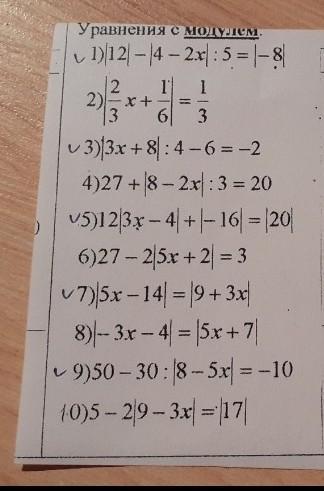 Уравнения с модулем.
✓ 1)|12| − |4 − 2x| : 5 = |−8|
2)|2/3 x + 1/6| = 1/3
✓ 3)|3x + 8| : 4 − 6 = −2
4)27 + |8 − 2x| : 3 = 20
✓ 5)12|3x − 4| + |−16| = |20|
6)27 − 2|5x + 2| = 3
✓ 7)|5x − 14| = |9 + 3x|
8)|−3x − 4| = |5x + 7|
✓ 9)50 − 30 : |8 − 5x| = −10
10)5 − 2|9 − 3x| = |17|